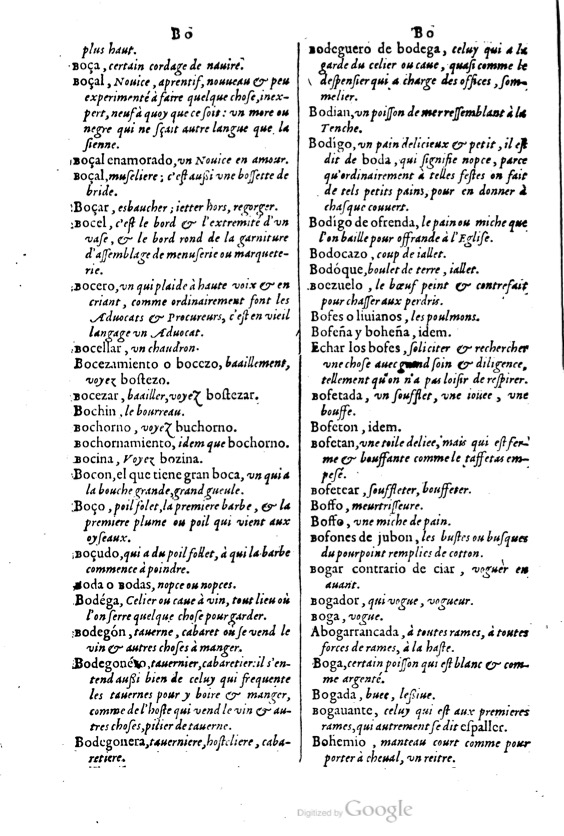 Bo
plus haut.
Boça, certain cordage de nauire.
Boçal, Nouice, aprentif, nouueau & peu
experimenté à faire quelque chose, inex-
pert, neuf à quoy que ce soit: vn more ou
negre qui ne sçait autre langue que la
sienne.
Boçal enamorado, vn Nouice en amour.
Boçal, museliere; c'est aussi vne bossette de
bride.
Boçar, esbaucher; ietter hors, regorger.
Bocel, c'est le bord & l'extremité d'vn
vase, & le bord rond de la garniture
d'assemblage de menuserie ou marquete-
rie.
Bocero, vn qui plaide à haute voix & en
criant, comme ordinairement font les
Aduocats & Procureurs, c'est en vieil
langage vn Aduocat.
Bocellar, vn chaudron.
Bocezamiento o bocezo, baaillement,
voyez bostezo.
Bocezar, baailler, voyez bostezar.
Bochin, le bourreau.
Bochorno, voyez buchorno.
Bochornamiento, idem que bochorno.
Bocina, Voyez bozina.
Bocon, el que tiene gran boca, vn qui a
la bouche grande, grand gueule.
Boço, poil folet, la premiere barbe, & la
premiere plume ou poil qui vient aux
oyseaux.
Boçudo, qui a du poil follet, à qui la barbe
commence à poindre.
Boda o Bodas, nopce ou nopces.
Bodéga, Celier ou caue à vin, tout lieu où
l'on serre quelque chose pour garder.
Bodegón, tauerne, cabaret où se vend le
vin & autres choses à manger.
Bodegonéro, tauernier, cabaretier: il s'en-
tend aussi bien de celuy qui frequente
les tauernes pour y boire & manger,
comme de l'hoste qui vend le vin & au-
tres choses, pilier de tauerne.
Bodegonera, tauerniere, hosteliere, caba-
retiere.
Bo
Bodeguero de bodega, celuy qui a la
garde du celier ou caue, quasi comme le
despensier qui a charge des offices, som-
melier.
Bodian, vn poisson de mer ressemblant à la
Tenche.
Bodigo, vn pain delicieux & petit, il est
dit de boda, qui signifie nopce, parce
qu'ordinairement à telles festes on fait
de tels petits pains, pour en donner à
chasque conuert.
Bodigo de ofrenda, le pain ou miche que
l'on baille pour offrande à l'Eglise.
Bodocazo, coup de iallet.
Bodóque, boulet de terre, iallet.
Boezuelo, le bœuf peint & contrefait
pour chasser aux perdris.
Bofes o liuianos, les poulmons.
Bofeña y boheña, idem.
Echar los bofes, soliciter & rechercher
vne chose auec grand soin & diligence,
tellement qu'on n'a pas loisir de respirer.
Bofetada, vn soufflet, vne iouee, vne
bouffe.
Bofeton, idem.
Bofetan, vne toile deliee, mais qui est fer-
me & bouffante comme le taffetas em-
pesé.
Bofetear, souffleter, bouffeter.
Boffo, meurtrisseure.
Boffo, vne miche de pain.
Bofones de jubon, les bustes ou busques
du pourpoint remplices de cotton.
Bogar contrario de ciar, voguer en
auant.
Bogador, qui vogue, vogueur.
Boga, vogue.
Abogarrancada, à toutes rames, à toutes
forces de rames, à la haste.
Boga, certain poisson qui est blanc & com-
me argenté.
Bogada, buee, lessiue.
Bogauante, celuy qui est aux premieres
rames, qui autrement se dit espaller.
Bohemio, manteau court comme pour
porter à cheual, vn reitre.
Digitized by Google